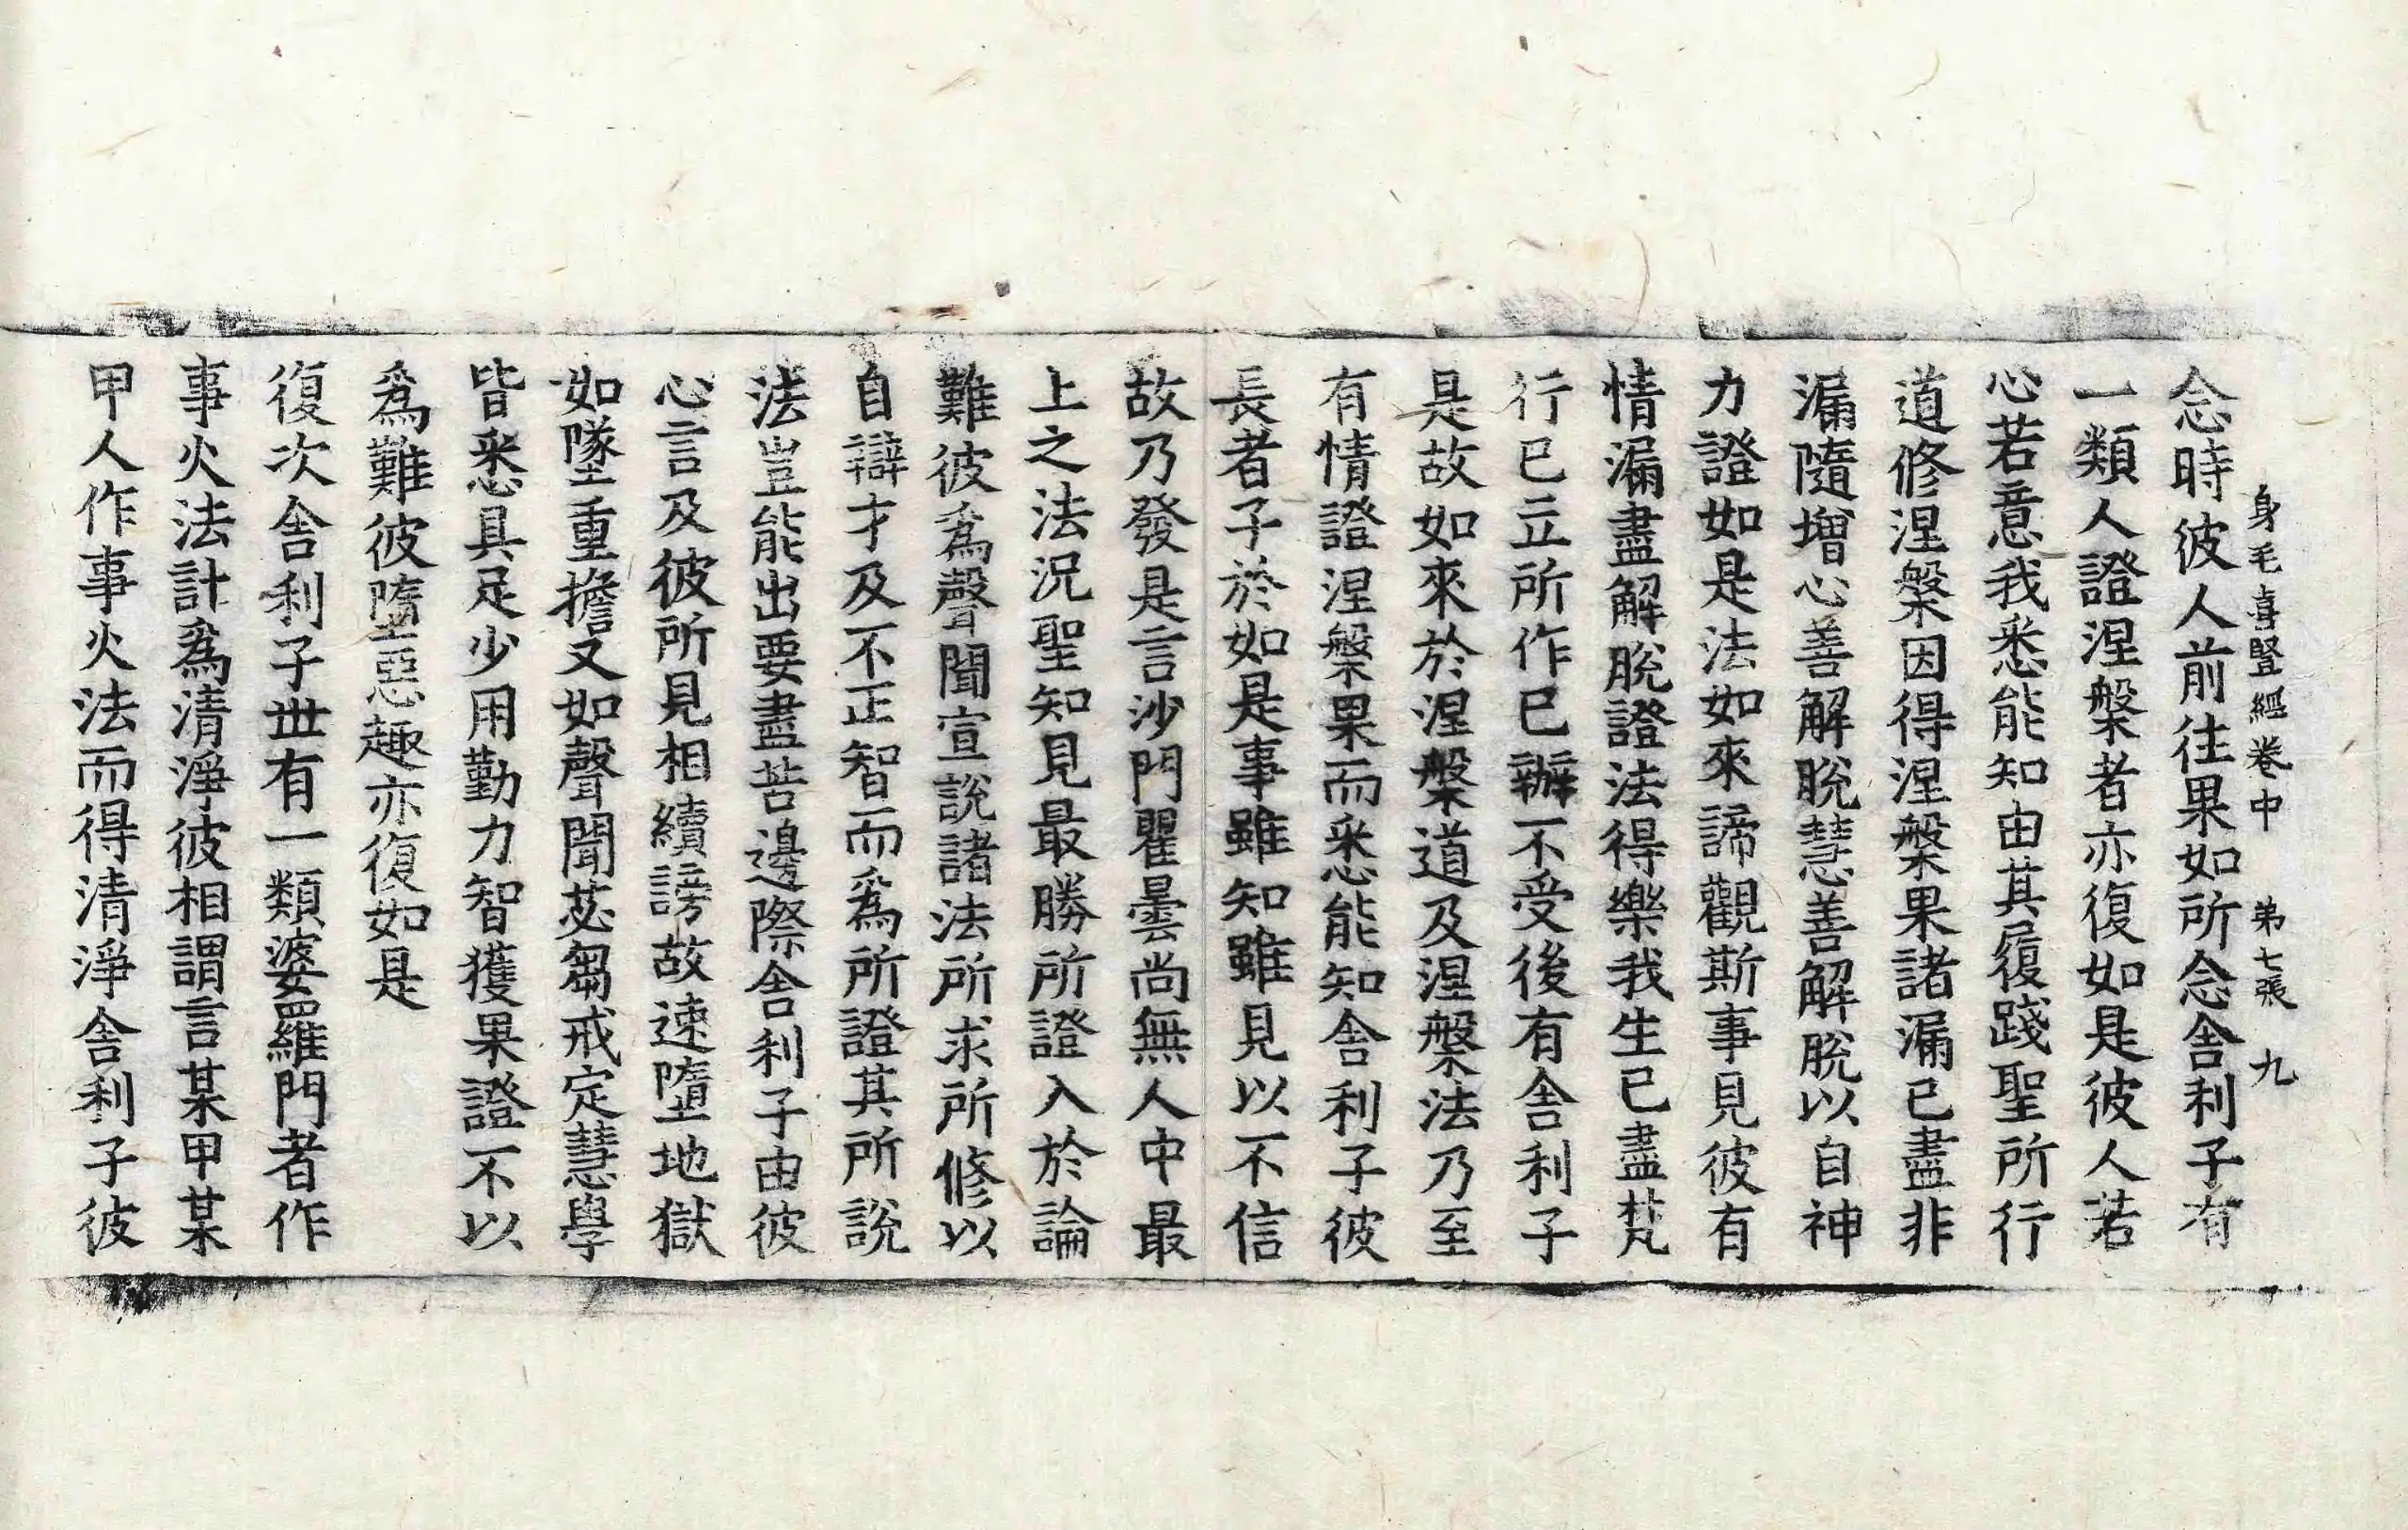 身毛喜豎經卷中 弟七張 九
念時彼人前往果如所念舍利子有
一類人證涅槃者亦復如是彼人若
心若意我悉能知由其履踐聖所行
道修涅槃因得涅槃果諸漏已盡非
漏隨增心善解脫慧善解脫以自神
力證如是法如來諦觀斯事見彼有
情漏盡解脫證法得樂我生已盡梵
行已立所作已辦不受後有舍利子
是故如來於涅槃道及涅槃法乃至
有情證涅槃果而悉能知舍利子彼
長者子於如是事雖知雖見以不信
故乃發是言沙門瞿曇尚無人中最
上之法況聖知見最勝所證入於論
難彼爲聲聞宣說諸法所求所修以
自辯才及不正智而爲所證其所說
法豈能出要盡苦邊際舍利子由彼
心言及彼所見相續謗故速墮地獄
如墜重擔又如聲聞苾芻戒定慧學
皆悉具足少用勤力智獲果證不以
爲難彼墮惡趣亦復如是
復次舍利子世有一類婆羅門者作
事火法計爲清淨彼相謂言某甲某
甲人作事火法而得清淨舍利子彼